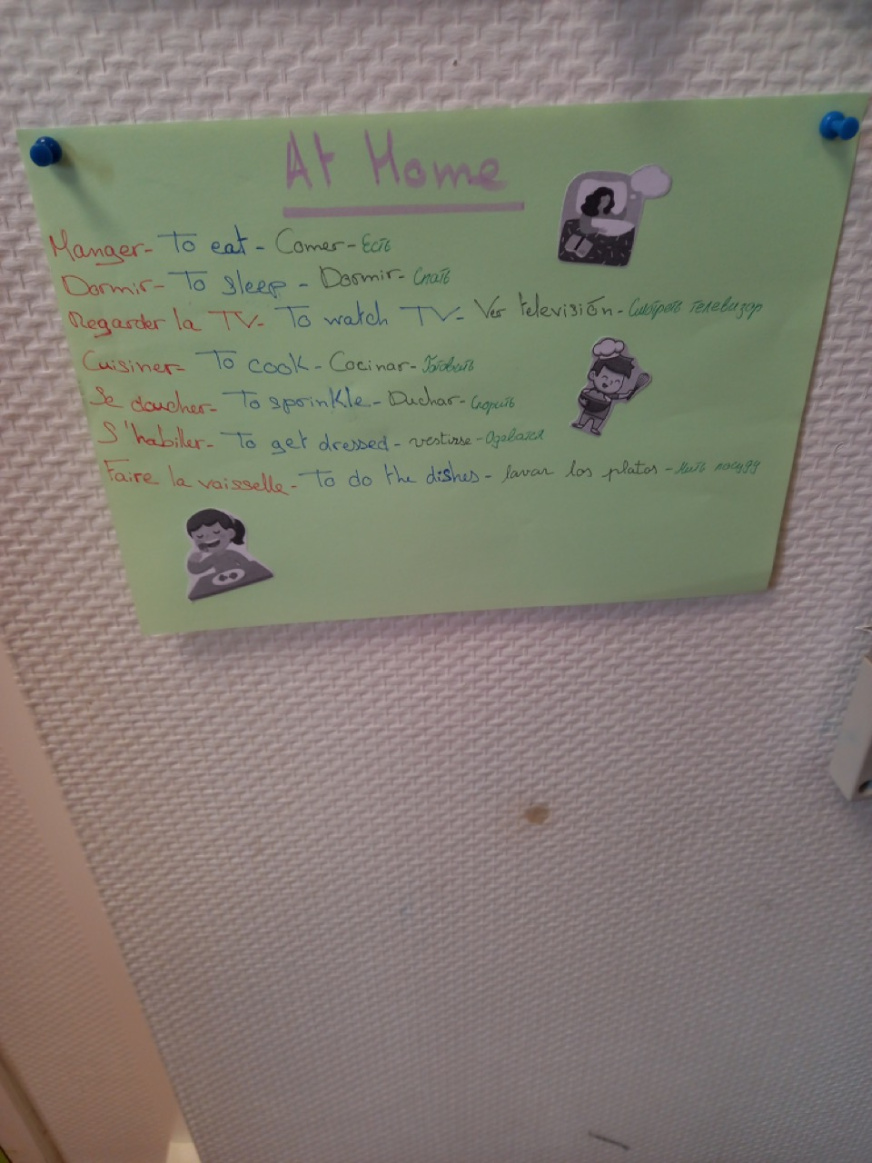 At Home
Manger - To eat - Comer - Есть
Dormir - To sleep - Dormir - Спать
Regarder la TV - To watch TV - Ver televisión - Смотреть телевизор
Cuisiner - To cook - Cocinar - Готовить
Se doucher - To sprinkle - Duchar -
S'habiller - To get dressed - vestirse -
Faire la vaisselle - To do the dishes - lavar los platos - Мить посуду